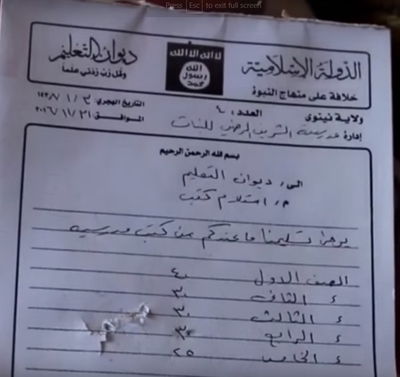 Press Esc to exit full screen
الدولة الإسلامية
خلافة على منهاج النبوة
لا اله الا الله
الله
رسول
محمد
ديوان التعليم
وقل رب زدني علماً
ولاية نينوى
العدد:
التاريخ الهجري:
الموافق:
إدارة مدرسة الشريف الرضي للبنات
بسم الله الرحمن الرحيم
الى/ ديوان التعليم
م/ استلام كتب
يرجى تسليمنا ما عندكم من كتب مدرسية
الصف الاول ٤٠
= الثاني ٣٠
= الثالث ٣٠
= الرابع
= الخامس ٢٥